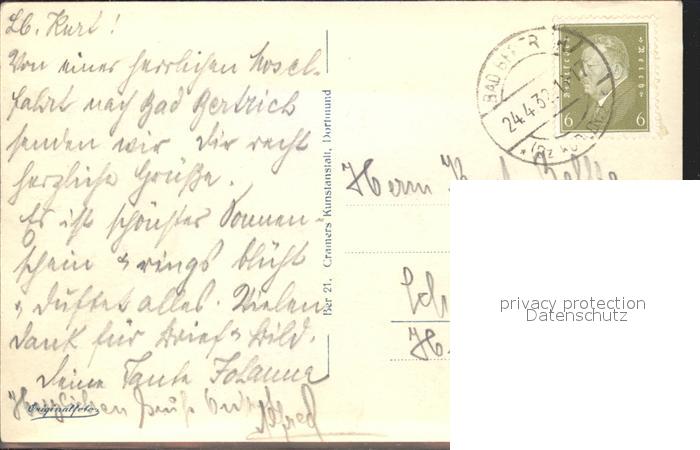 Lb. Kurt!
Von einer herrlichen Mosel-
fahrt nach Bad Bertrich
senden wir Dir recht
herzliche Grüße.
Es ist schönster Sonnen-
schein & rings blüht
& duftet alles. Vielen
Dank für Brief & Bild.
Deine Tante Johanna
Herzlichen Gruß
Alfred
Originalfoto
Ber 21. Cramers Kunstanstalt, Dortmund
BAD BERTR
24.4.3
Deutsches Reich
6 6
Herrn
privacy protection
Datenschutz